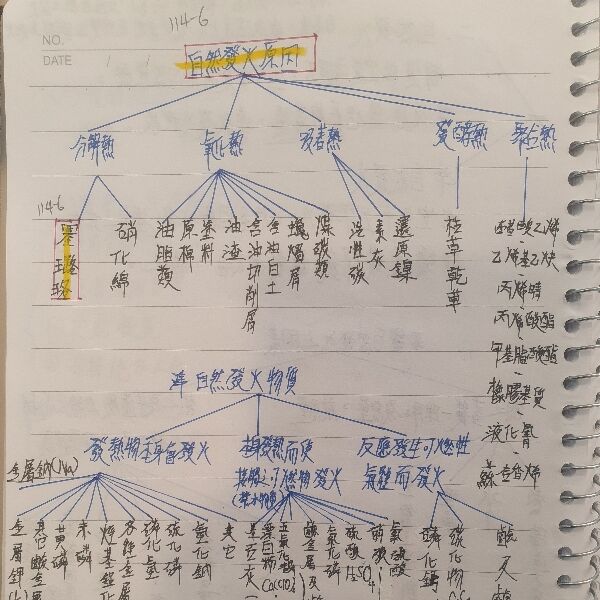 114-6
NO.
DATE / /
自然發火原因
分解熱 氧化熱 吸着熱 發酵熱 聚合熱
114-6
賽璐珞
硝化綿
油脂類
原棉
塗料
油渣
含油切削屑
含油白土
蠟燭屑
煤碳類
活性碳
素灰
還原鎳
枯草乾草
醋酸乙烯
乙烯基乙炔
丙烯腈
丙烯酸酯
甲基丙烯酸酯
橡膠基質
液化氰
苯乙烯
準自然發火物質
發熱物本身會發火
本身發熱而使
接觸之可燃物發火
(禁水物質)
反應發生可燃性
氣體而發火
金屬鈉(Na)
金屬鉀
黃磷
赤磷
磷化氫
硫化磷
氫化鈉
其它
生石灰
漂白粉
五氧化磷
氯化磷
硫酸
H₂SO₄
硝酸
氯磺酸
磷化鈣
碳化物